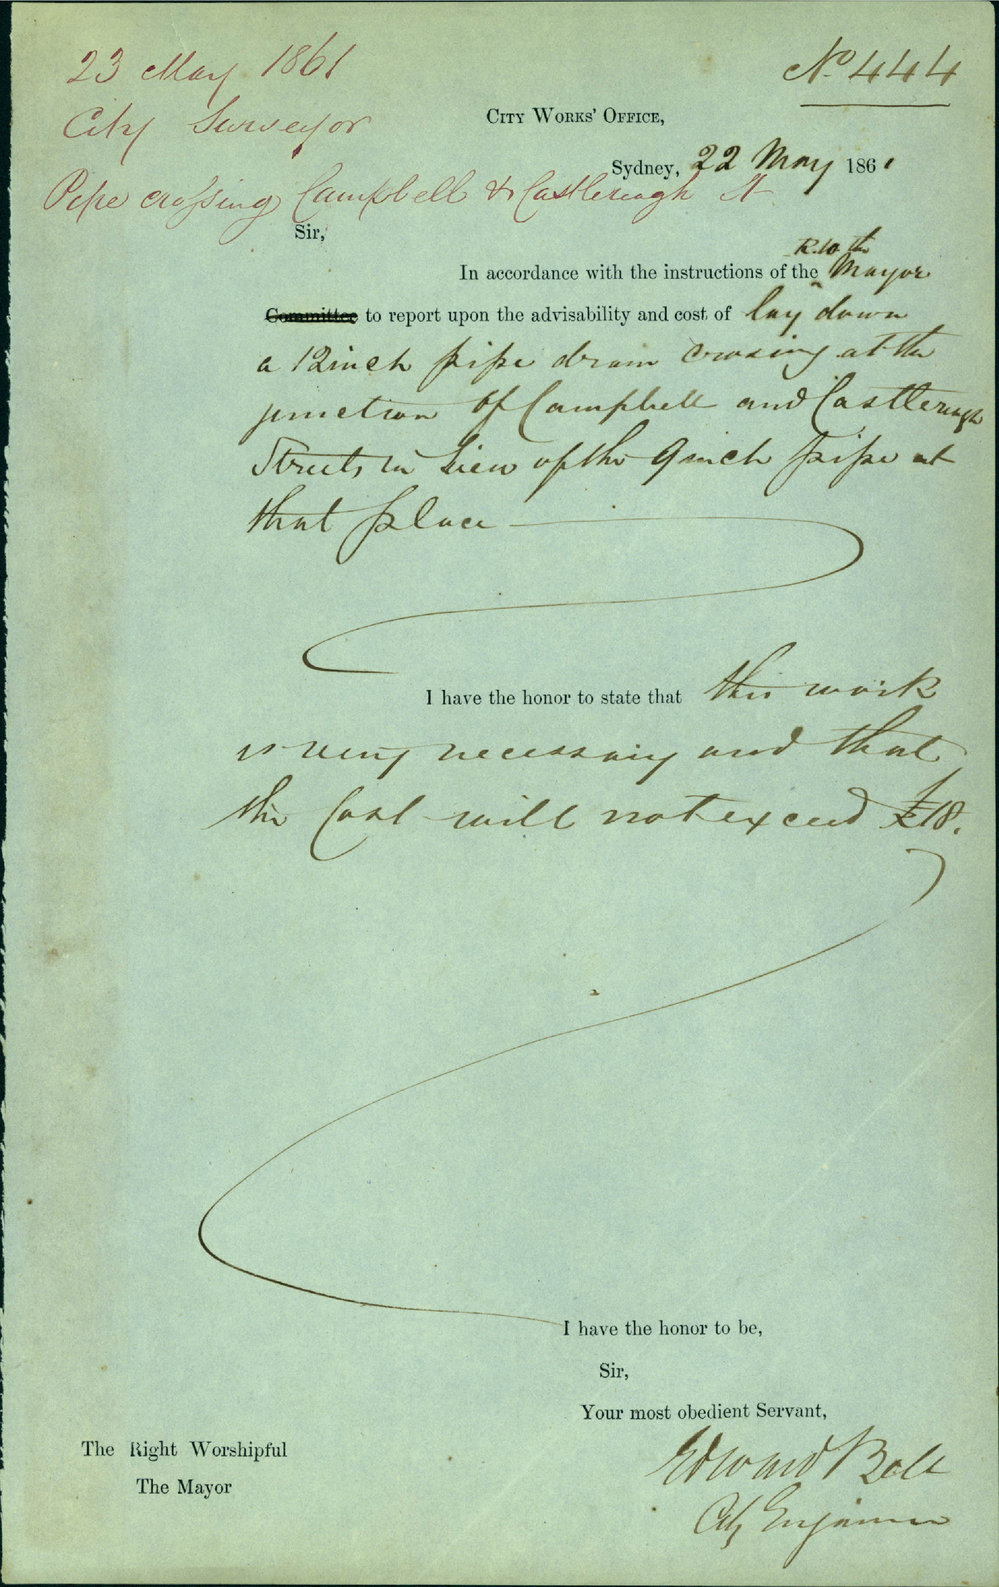 23 May 1861
No. 444
City Surveyor
CITY WORKS' OFFICE,
Sydney, 22 May 1861
Pipe crossing Campbell & Castlereagh St
Sir,
In accordance with the instructions of the Rt. W. the Mayor
Committee to report upon the advisability and cost of lay down
a 12 inch pipe drain crossing at the
junction of Campbell and Castlereagh
Streets in liew of the 9 inch pipe at
that place
I have the honor to state that this work
is very necessary and that
the Cost will not exceed £18.
I have the honor to be,
Sir,
Your most obedient Servant,
The Right Worshipful
The Mayor
Edward Bell
City Engineer